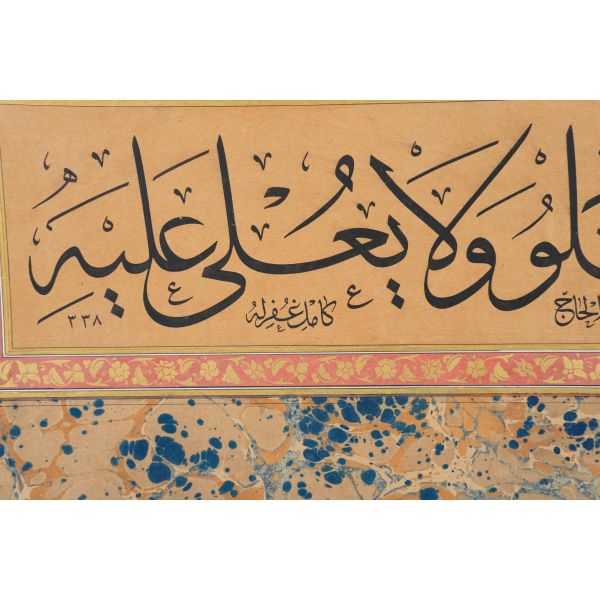 علو ولا يعلى عليه
الحاج
كامل غفر له
٣٣٨